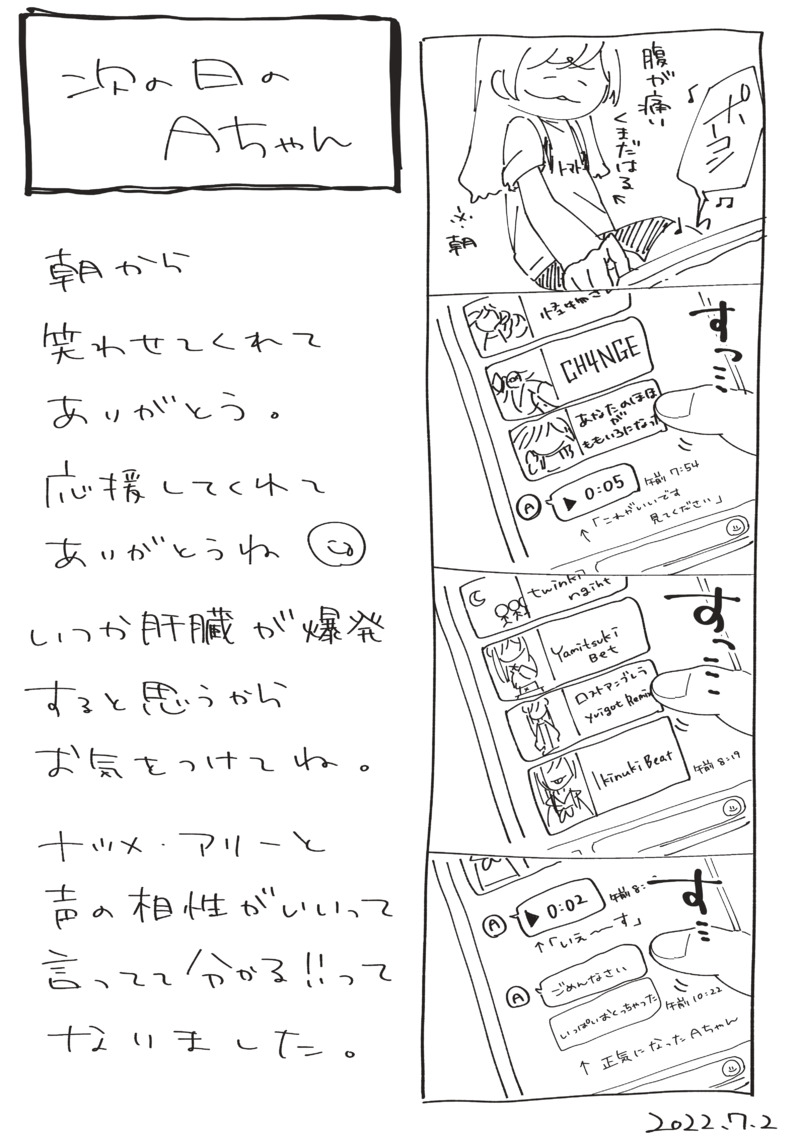 次の日の
Aちゃん
朝から
笑わせてくれて
ありがとう。
応援してくれて
ありがとうね
いつか肝臓が爆発
すると思うから
お気をつけてね。
ナツメ・アリーと
声の相性がいいって
言ってて分かる!!って
なりました。
腹が痛い
くまだはる
トマト
ポーコン
※朝
すっ…
CH4NGE
あなたのほほ
が
ももいろになっ
A
0:05
午前 7:54
↑「これがいいです
見てください」
すっ…
twinkl
night
Yamitsuki
Bet
ロストアンブレラ
Yuigot Remix
Ikinuki Beat
午前 8:19
すっ…
A
0:02
午前 8:
↑「いえ〜〜す」
A
ごめんなさい
いっぱいおくっちゃった
午前 10:22
↑正気になったAちゃん
2022.7.2